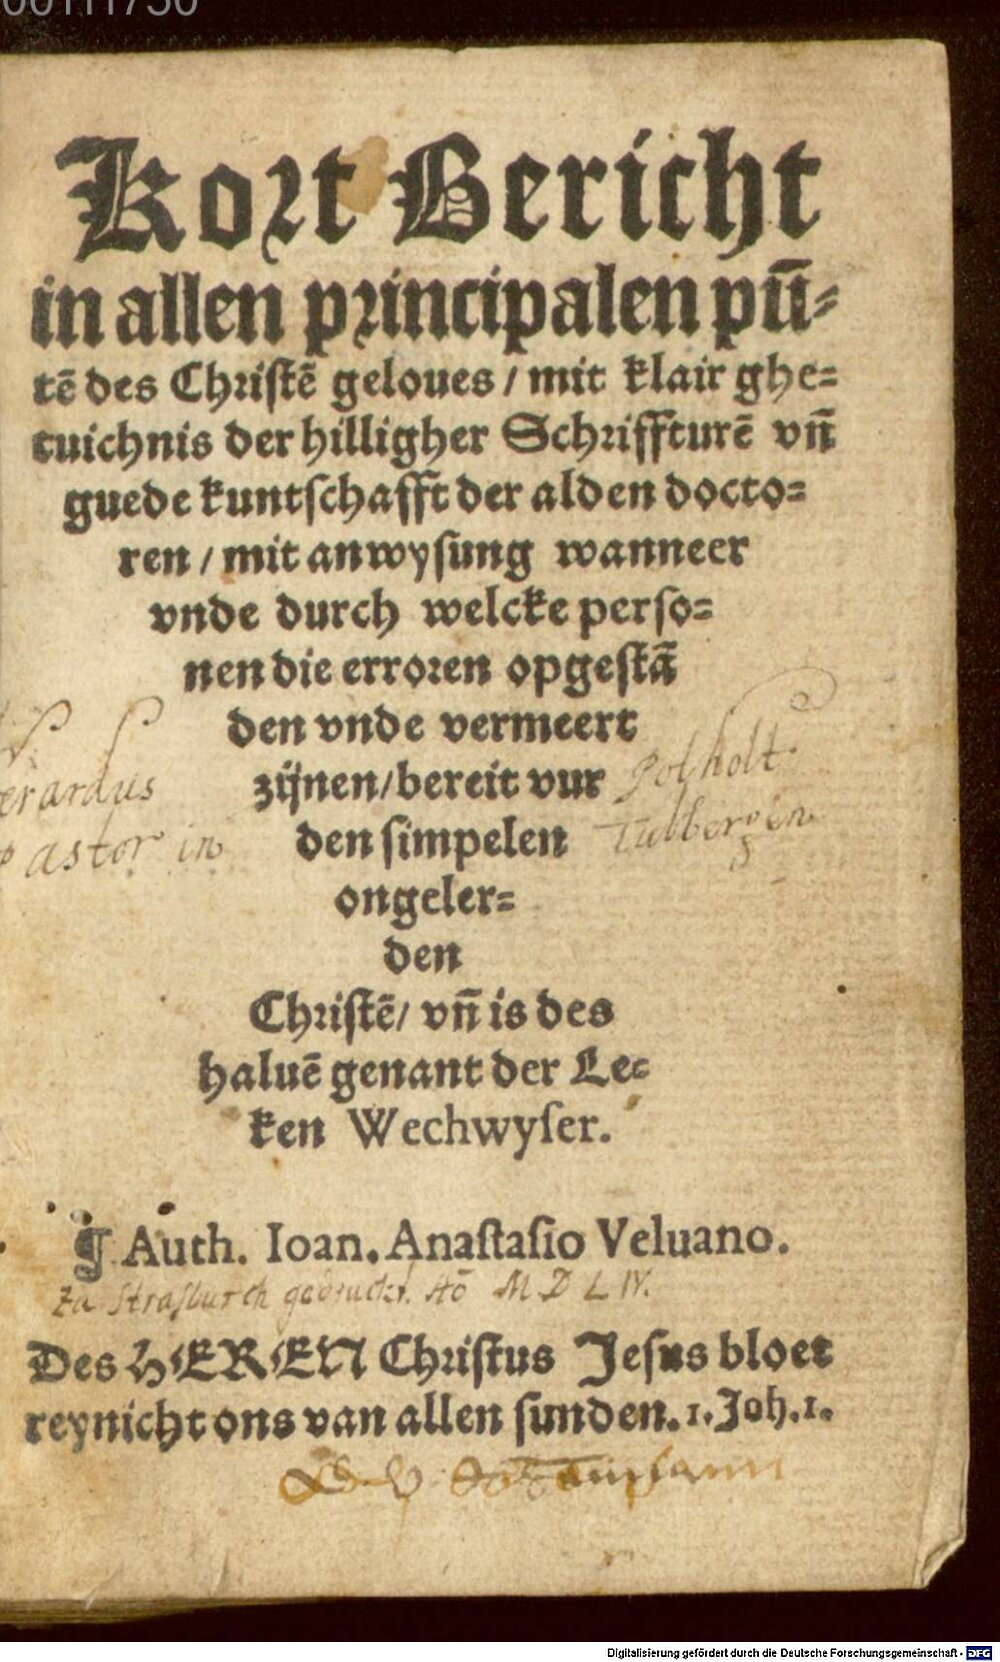 Kort Bericht
in allen principalen pū-
tē des Christē geloues / mit klair ghe-
tuichnis der hilligher Schriffturē vn̄
guede kuntschafft der alden docto-
ren / mit anwysung wanneer
vnde durch welcke perso-
nen die erroren opgestā
den vnde vermeert
zijnen / bereit vur
Polholt
erardus
den simpelen
Tubbergen
pastor in
ongeler-
den
Christē / vn̄ is des
haluē genant der Le-
ken Wechwyser.
¶ Auth. Ioan. Anastasio Veluano.
Zu Strasburch gedruckt. Aō M D L IV.
Des HEREN Christus Jesus bloet
reynicht ons van allen sunden. 1. Joh. 1.
Digitalisierung gefördert durch die Deutsche Forschungsgemeinschaft - DFG